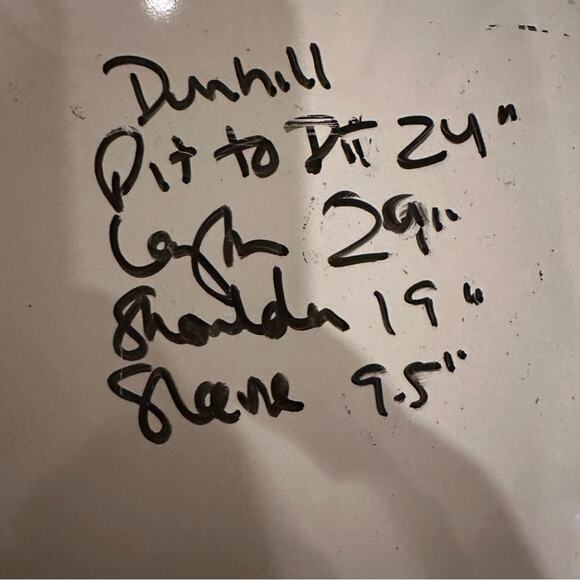 Dunhill
Pit to Pit 24"
Length 29"
Shoulder 19"
Sleeve 9.5"